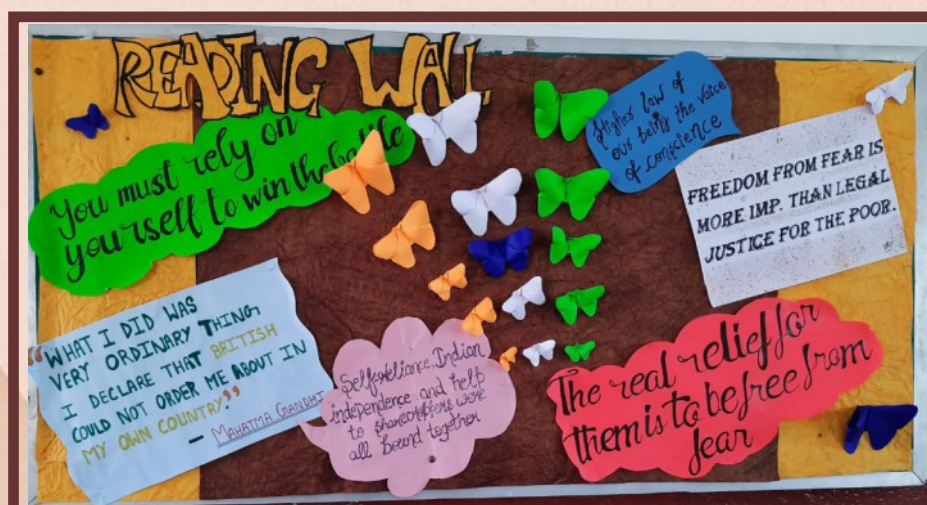 READING WALL
You must rely on
yourself to win the battle
Higher law of
our being the voice
of conscience
FREEDOM FROM FEAR IS
MORE IMP. THAN LEGAL
JUSTICE FOR THE POOR.
"WHAT I DID WAS
VERY ORDINARY THING
I DECLARE THAT BRITISH
COULD NOT ORDER ME ABOUT IN
MY OWN COUNTRY."
— MAHATMA GANDHI
Selfreliance, Indian
independence and help
to sharecroppers were
all bound together
The real relief for
them is to be free from
fear